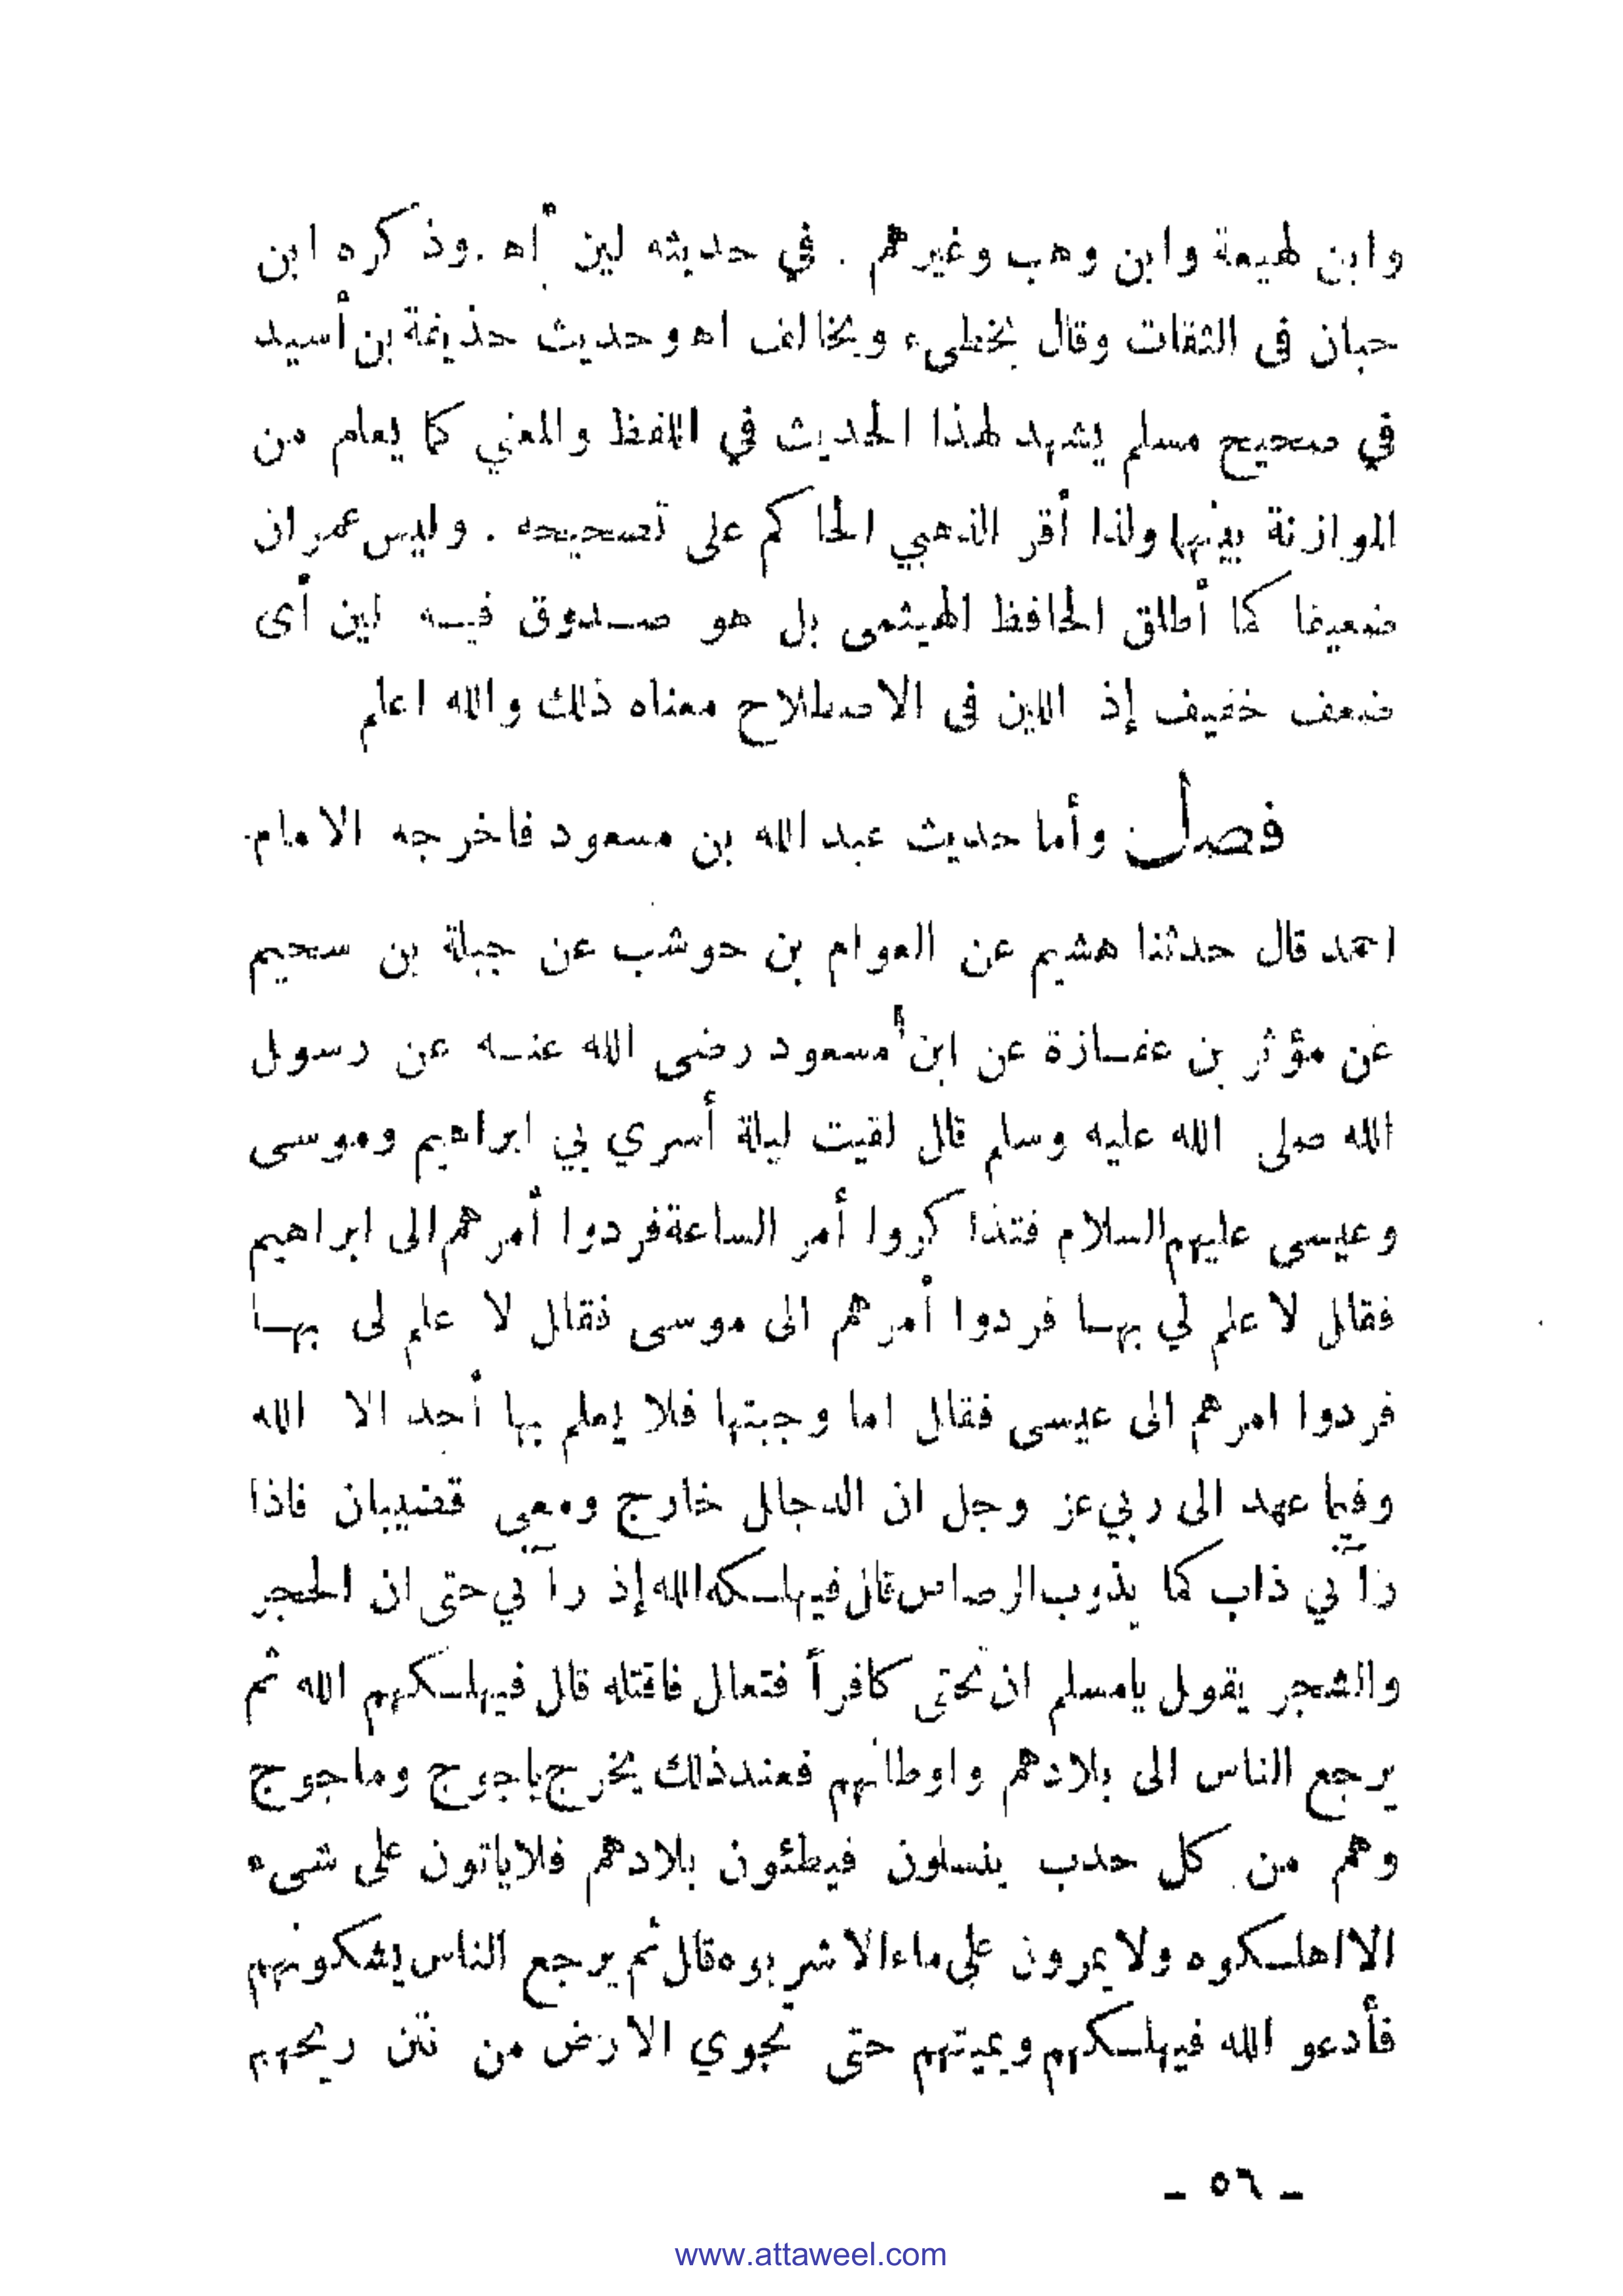 وابن لهيعة وابن وهب وغيرهم . في حديثه لين أه . وذكره ابن
حبان فى الثقات وقال يخطىء ويخالف اه وحديث حذيفة بن أسيد
في صحيح مسلم يشهد لهذا الحديث في اللفظ والمعني كما يعلم من
الموازنة بينها ولذا أقر الذهبي الحاكم على تصحيحه . وليس عمران
ضعيفا كما أطلق الحافظ الهيثمى بل هو صدوق فيه لين أى
ضعف خفيف إذ اللين فى الاصطلاح معناه ذلك والله اعلم
فصل وأما حديث عبد الله بن مسعود فاخرجه الامام
احمد قال حدثنا هشيم عن العوام بن حوشب عن جبلة بن سحيم
عن مؤثر بن عفازة عن ابن مسعود رضى الله عنه عن رسول
الله صلى الله عليه وسلم قال لقيت ليلة أسري بي ابراهيم وموسى
وعيسى عليهم السلام فتذاكروا أمر الساعة فردوا أمرهم الى ابراهيم
فقال لا علم لي بها فردوا أمرهم الى موسى فقال لا علم لى بها
فردوا امرهم الى عيسى فقال اما وجبتها فلا يعلم بها أحد الا الله
وفيما عهد الى ربي عز وجل ان الدجال خارج ومعي قضيبان فاذا
رآني ذاب كما يذوب الرصاص قال فيهلكه الله إذ رآني حتى ان الحجر
والشجر يقول يا مسلم ان تحتى كافراً فتعال فاقتله قال فيهلكهم الله ثم
يرجع الناس الى بلادهم واوطانهم فعند ذلك يخرج ياجوج وماجوج
وهم من كل حدب ينسلون فيطئون بلادهم فلا ياتون على شىء
الا اهلكوه ولا يمرون على ماء الا شربوه قال ثم يرجع الناس يشكونهم
فأدعو الله فيهلكهم ويميتهم حتى تجوي الارض من نتن ريحهم
- ٥٦ -
www.attaweel.com